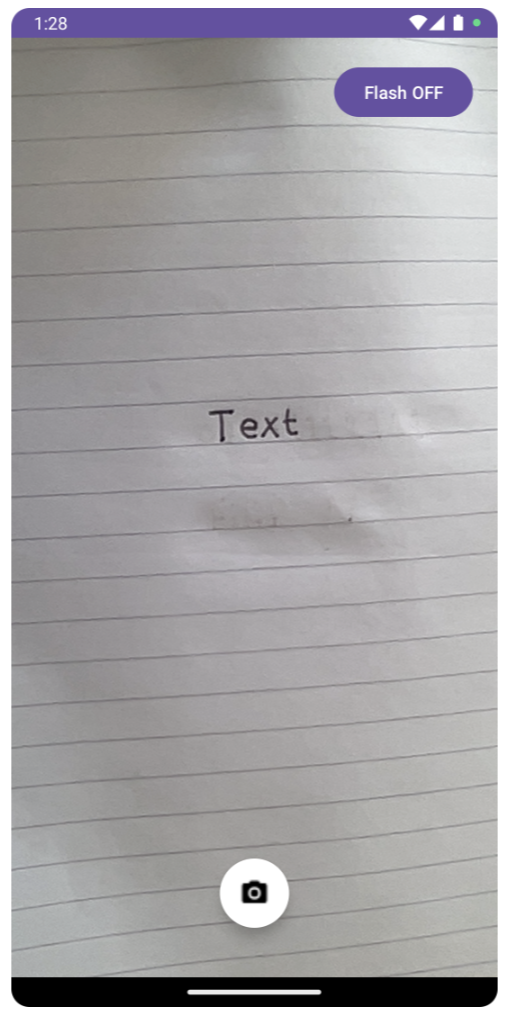 1:28
Flash OFF
Text